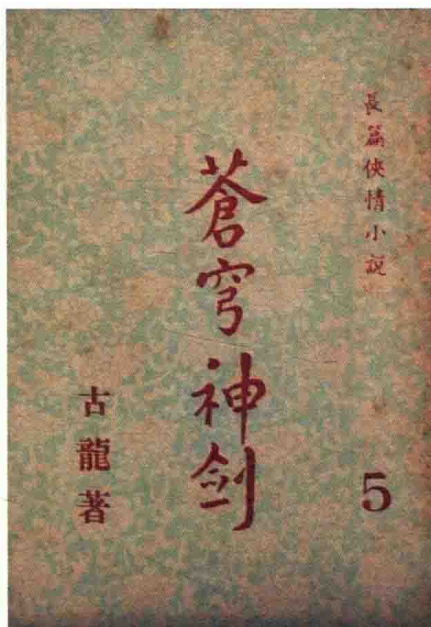 長篇俠情小説
蒼穹神劍
古龍著
5